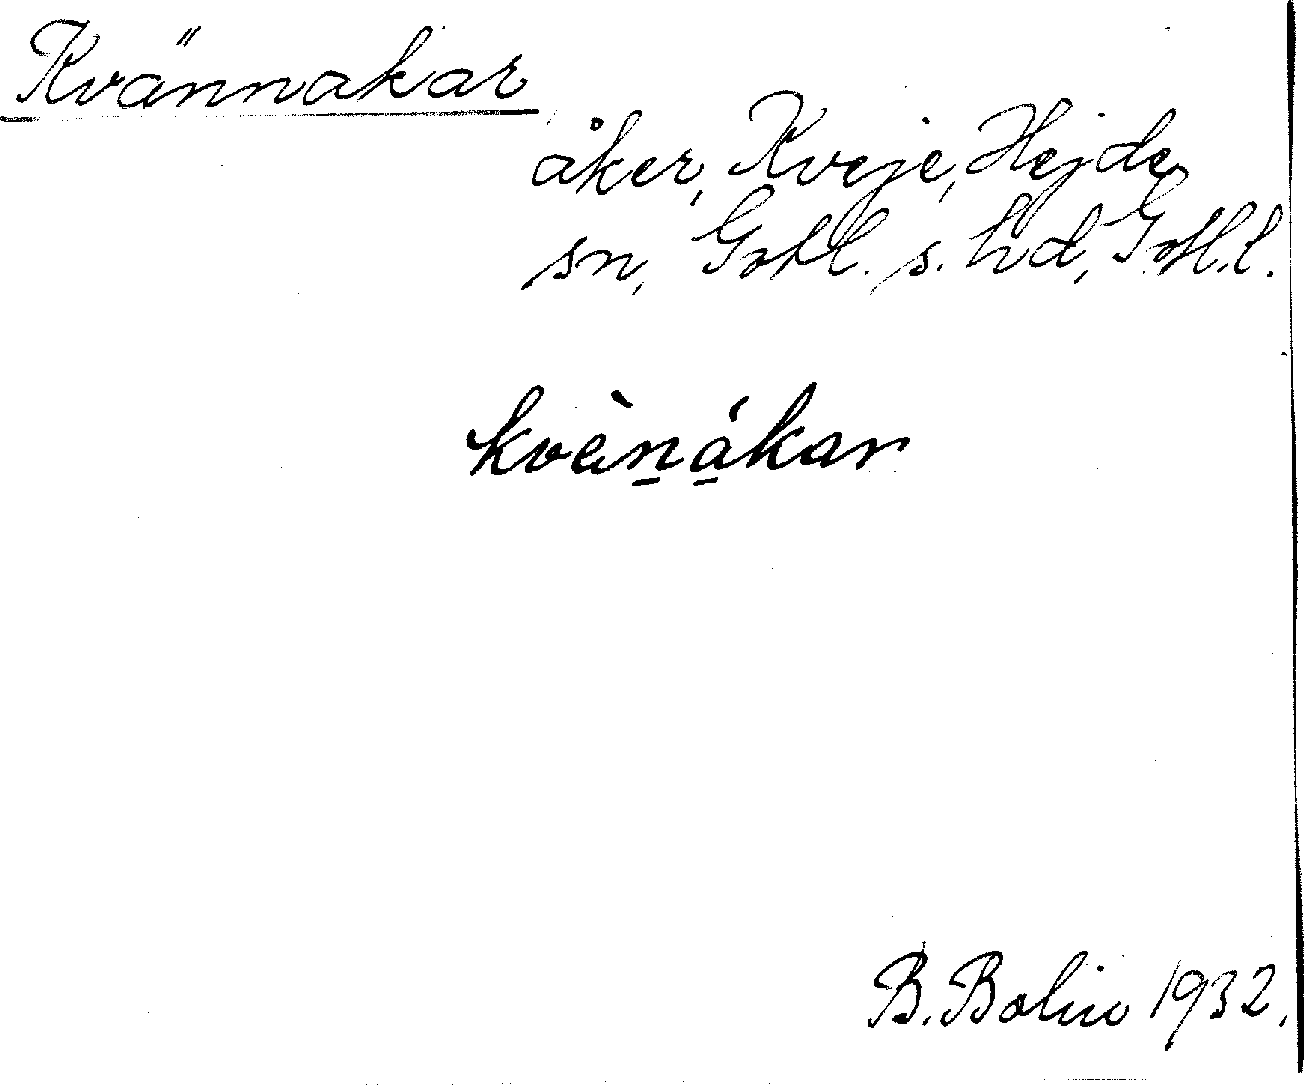 Kvännakar
åker, Kveje, Hejde
sn, Gotl. s. hd, Gotl.l.
kvèn̲á̲kar
B. Bolin 1932.